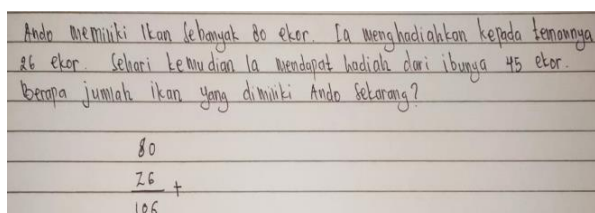 Ando memiliki Ikan Sebanyak 80 ekor. Ia menghadiahkan kepada temannya
26 ekor. Sehari kemudian Ia mendapat hadiah dari ibunya 45 ekor.
Berapa jumlah ikan yang dimiliki Ando Sekarang?
80
26 +
106